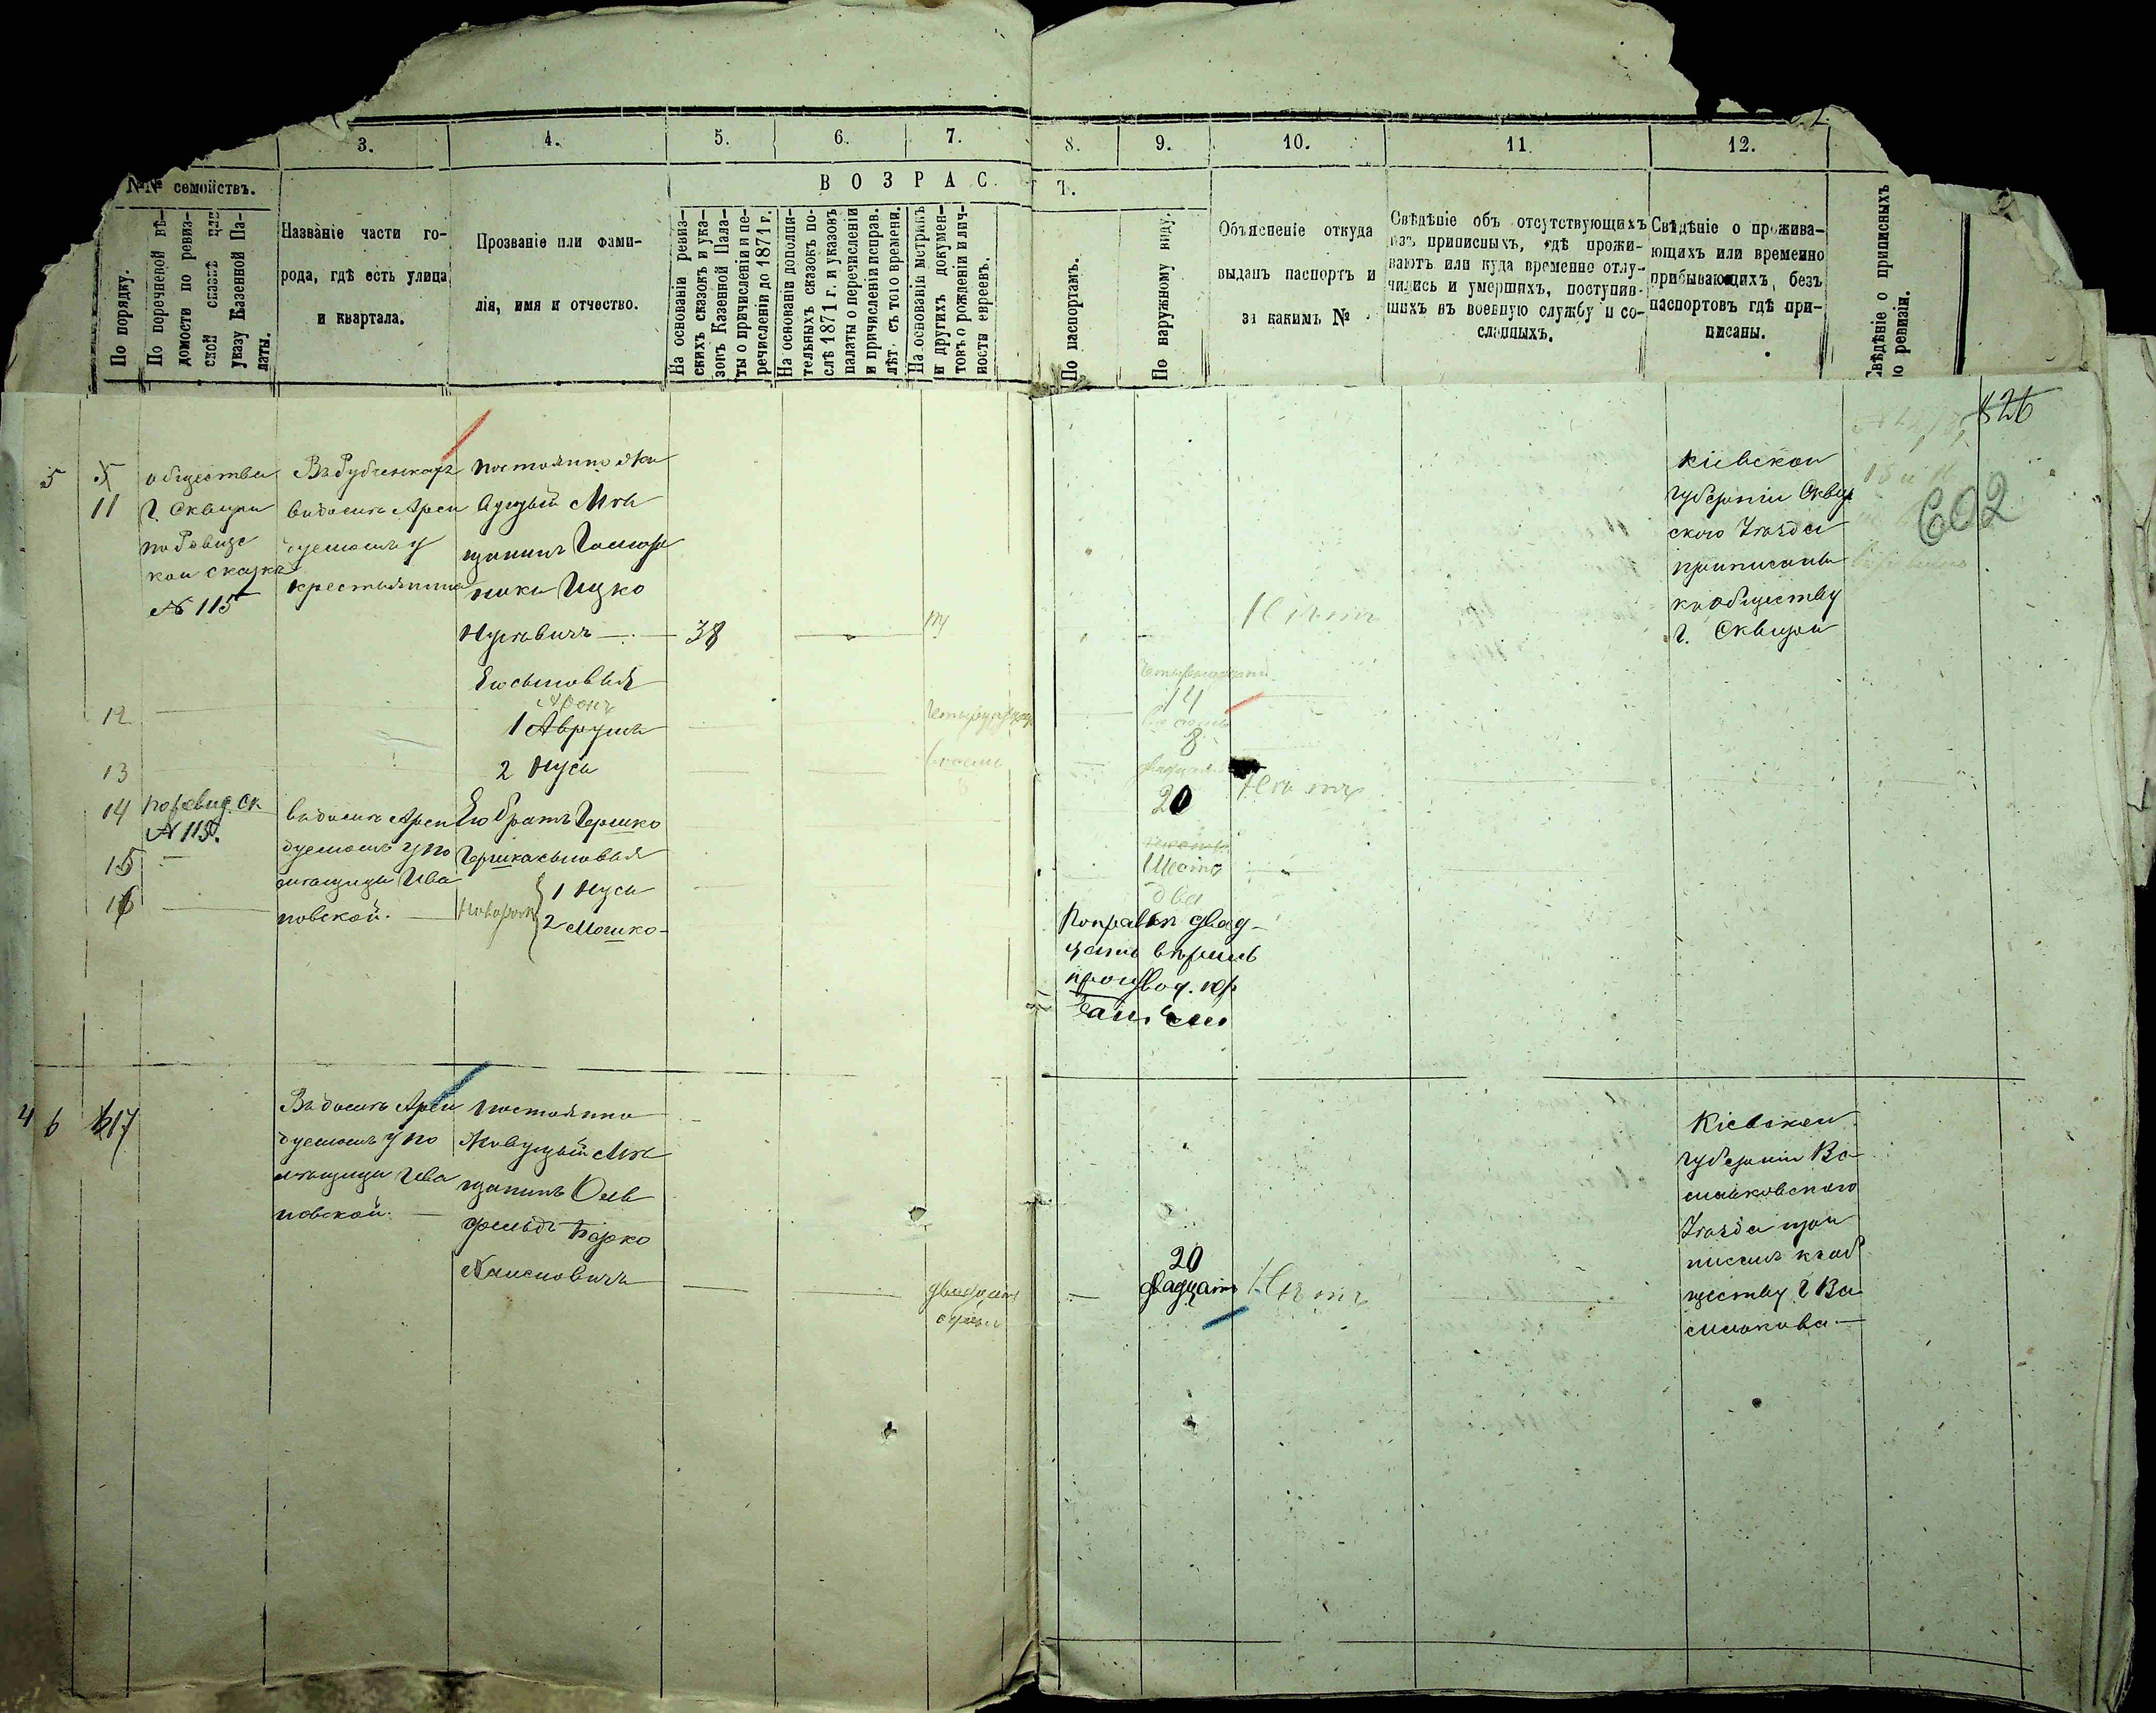 3.
4.
5.
6.
7.
8.
9.
10.
11.
12.
№№ семействъ.
По порядку.
По перечневой вѣ-
домости по ревиз-
ской сказкѣ или
указу Казенной Па-
латы.
Названіе части го-
рода, гдѣ есть улица
и квартала.
Прозваніе или фами-
лія, имя и отчество.
В О З Р А С Т Ъ.
На основаніи ревиз-
скихъ сказокъ и ука-
зовъ Казенной Пала-
ты о причисленіи и пе-
речисленіи до 1871 г.
На основаніи дополни-
тельныхъ сказокъ по-
слѣ 1871 г. и указовъ
палаты о перечисленіи
и причисленіи исправ.
лѣт. съ того времени.
На основаніи метрикъ
и другихъ докумен-
товъ о рожденіи и лич-
ности евреевъ.
По паспортамъ.
По наружному виду.
Объясненіе откуда
выданъ паспортъ и
за какимъ №
Свѣдѣніе объ отсутствующихъ
изъ приписныхъ, гдѣ прожи-
ваютъ или куда временно отлу-
чились и умершихъ, поступив-
шихъ въ военную службу и со-
сланныхъ.
Свѣдѣніе о прожива-
ющихъ или временно
прибывающихъ, безъ
паспортовъ гдѣ при-
писаны.
Свѣдѣніе о приписныхъ
по ревизіи.
826
602
5
11
общества
г. Сквиры
по Ревизс
кой сказкѣ
№ 115
домѣ Арен
дуемомъ у
крестьянина
постоянно жи
вущій Мѣ
щанинъ
Ицко
Нусевичъ
38
Нѣтъ
Кіевской
губерніи Сквир
ского Уѣзда
приписаны
къ обществу
г. Сквиры
Его сыновья
12
Аронъ
1 Аврумъ
четырнадцать
14
восемь
8
13
2 Нусь
восемь
20
Нѣтъ
14
по ревиз. ск
№ 115.
въ домѣ Арен
дуемомъ у по
мѣщицы Ива
новской.
Его братъ Гершко
Гершка сыновья
15
1 Нусь
Шесть
16
2 Мошко
два
Поправки двад-
цать вѣрны
4
6
17
Въ домѣ Арен
дуемомъ у по
мѣщицы Ива
новской.
постоянно
живущій Мѣ
щанинъ
Берко
двадцать
20
двадцать
Нѣтъ
Кіевской
губерніи Ва
сильковского
Уѣзда при
писанъ къ об
ществу г. Ва
силькова